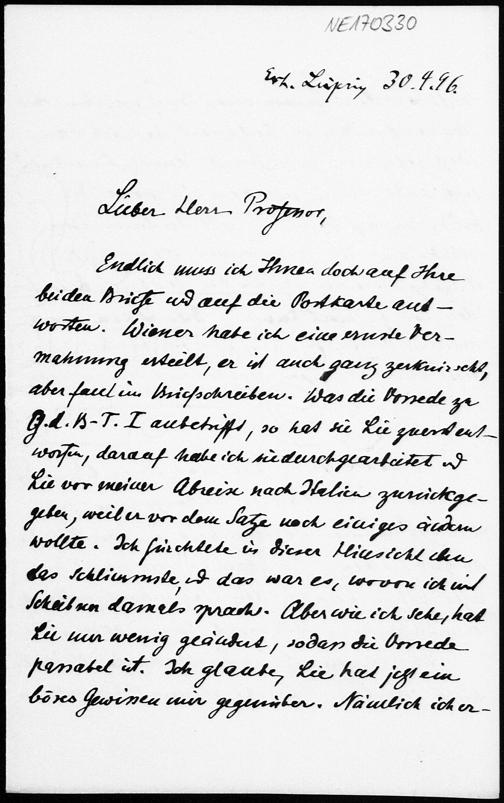 NE170330
Leipzig 30.4.96.
Lieber Herr Professor,
Endlich muss ich Ihnen doch auf Ihre
beiden Briefe u auf die Postkarte ant-
worten. Wiener habe ich eine ernste Ver-
mahnung erteilt, er ist auch ganz zerknirscht,
aber faul im Briefschreiben. Was die Vorrede zu
G.d.B-T. I anbetrifft, so hat sie Lie zuerst ent-
worfen, darauf habe ich sie durchgearbeitet u
Lie vor meiner Abreise nach Italien zurückge-
geben, weil er vor dem Satze noch einiges ändern
wollte. Ich fürchtete in dieser Hinsicht eben
das Schlimmste, u das war es, wovon ich mit
Scheibner damals sprach. Aber wie ich sehe, hat
Lie nur wenig geändert, sodass die Vorrede
passabel ist. Ich glaube, Lie hat jetzt ein
böses Gewissen mir gegenüber. Nämlich ich er-